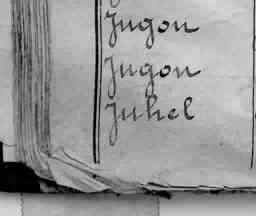 Jugon
Jugon
Juhel